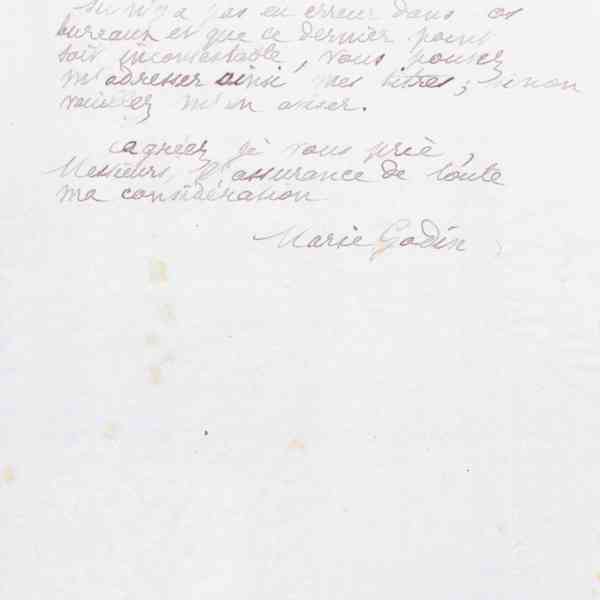 n'y a pas eu erreur dans vos
bureaux et que ce dernier point
soit incontestable, vous pouvez
m'adresser ainsi mes titres ; sinon
veuillez m'en aviser.
agréez je vous prie,
Messieurs, l'assurance de toute
ma considération
Marie Godin